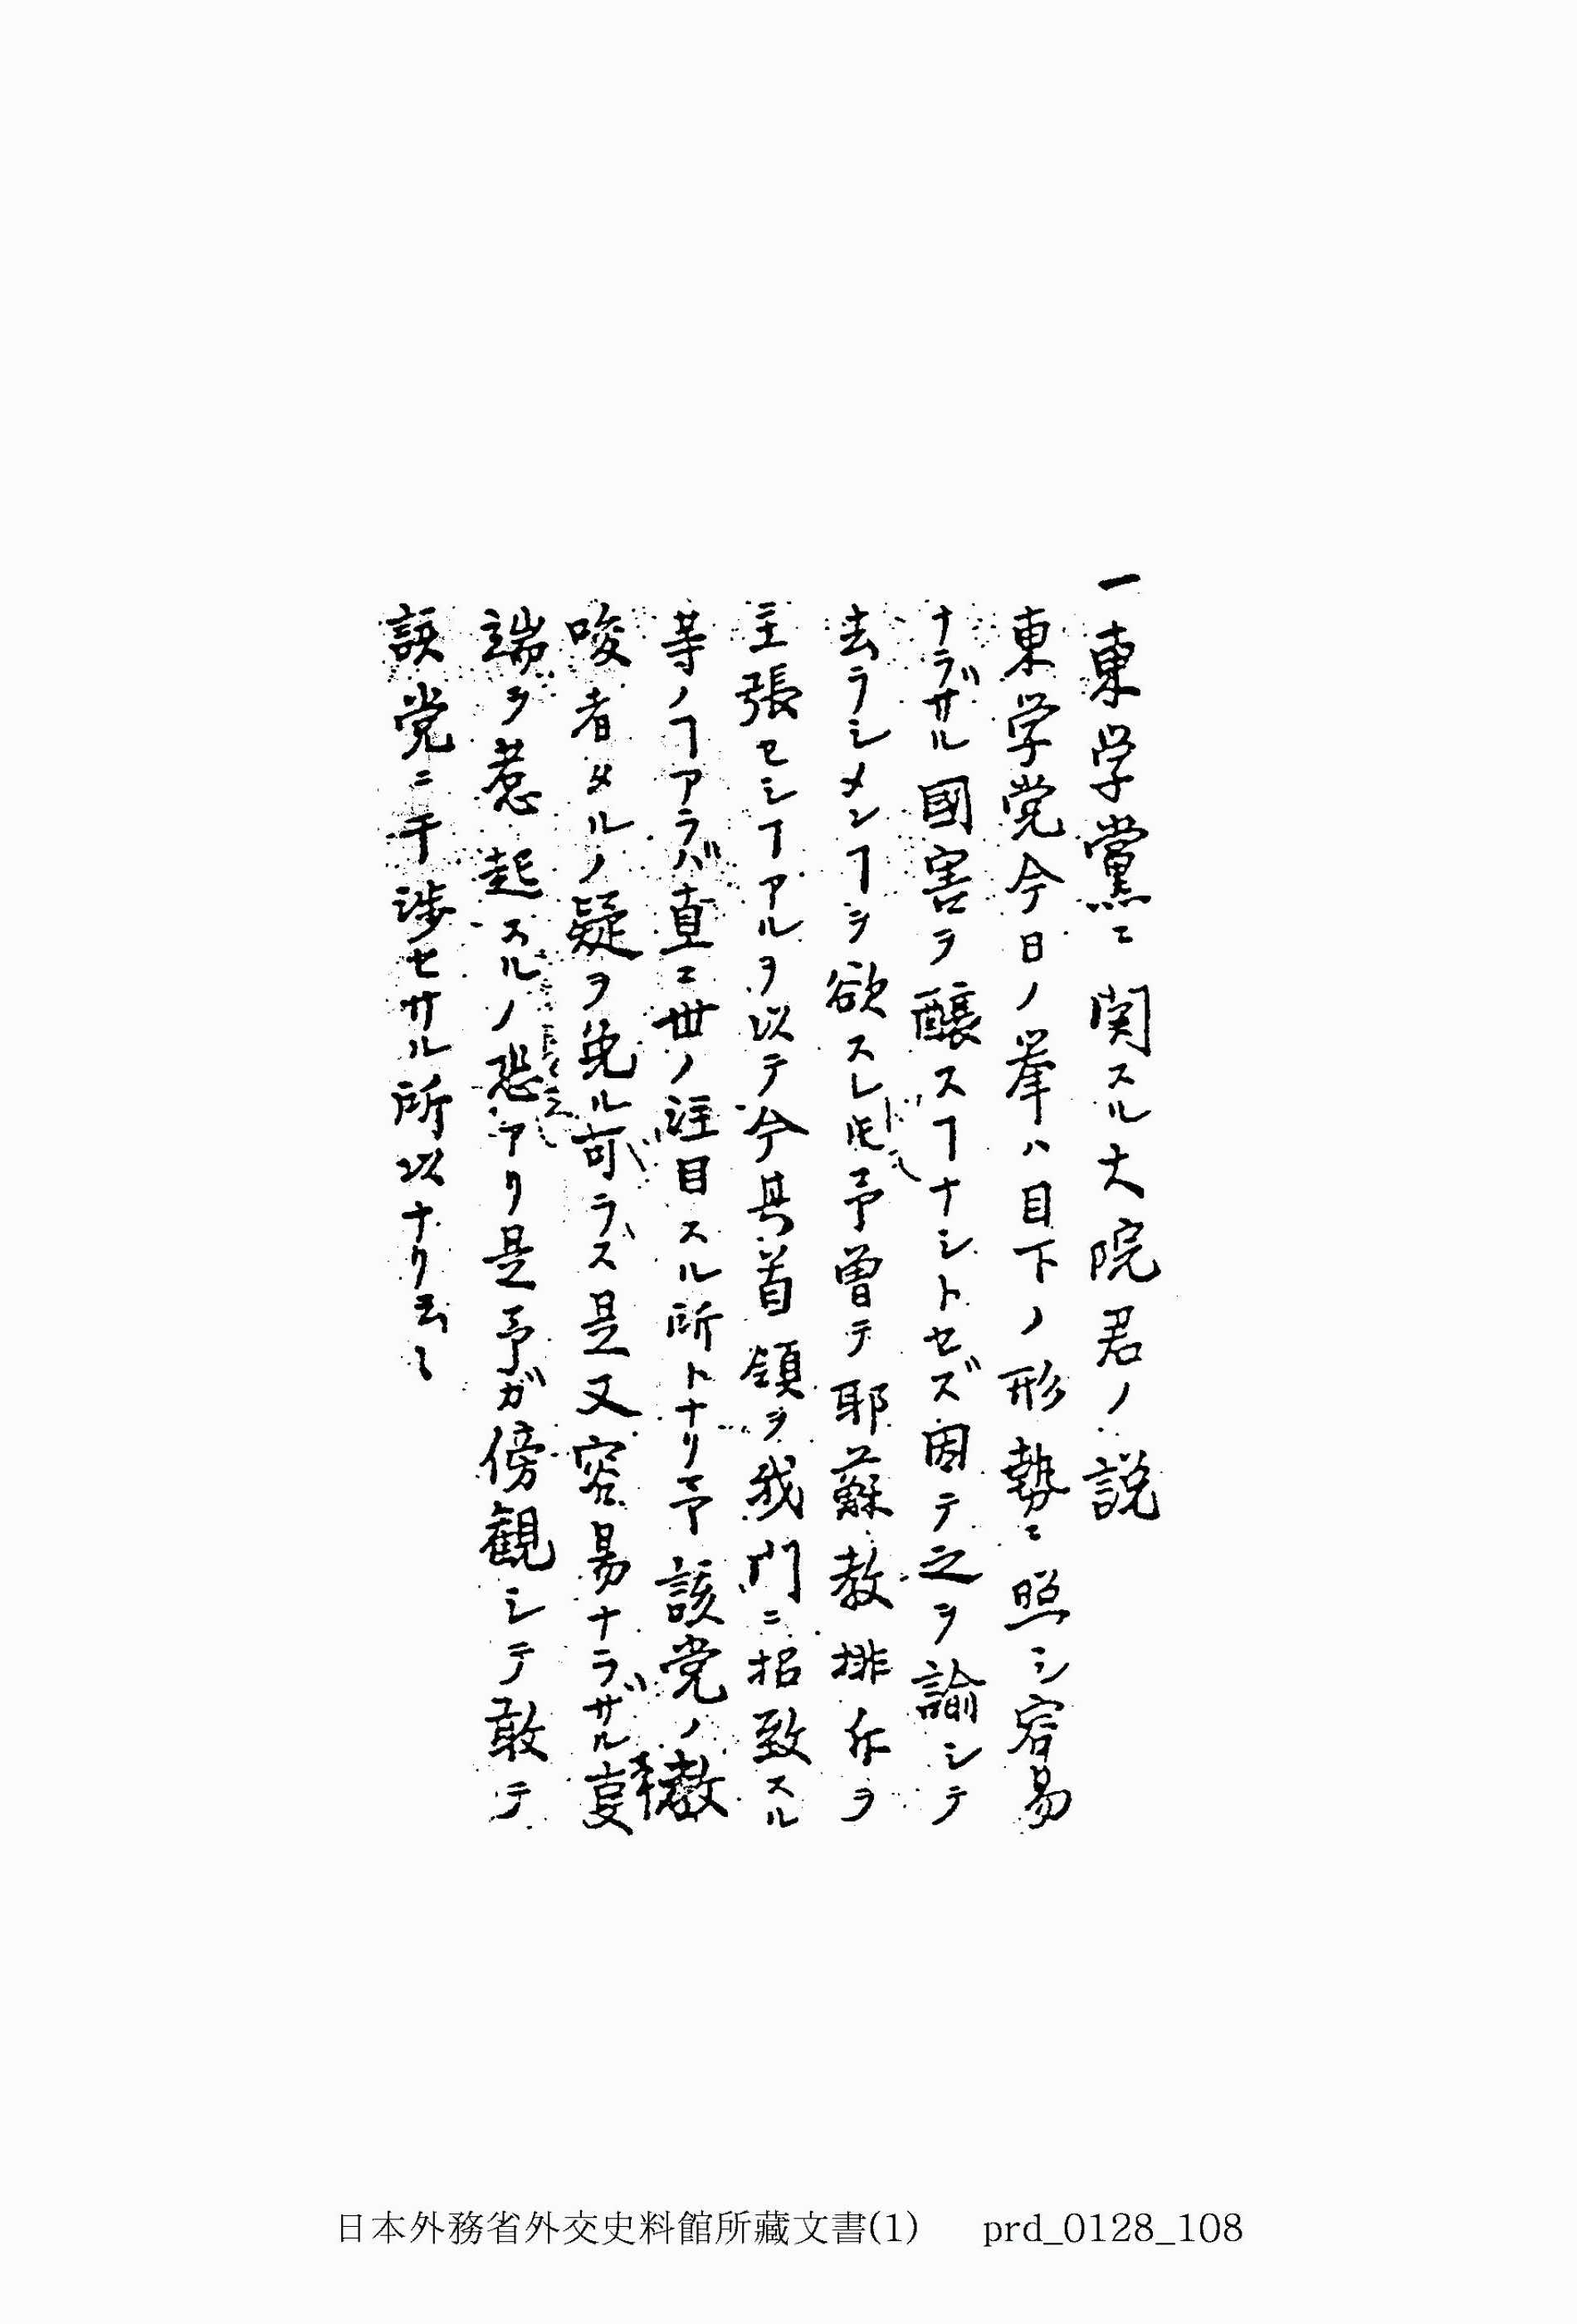 一東学黨ニ関スル大院君ノ説
東学党今日ノ挙ハ目下ノ形勢ニ照シ容易
ナラザル國害ヲ醸スヿナシトセズ因テ之ヲ諭シテ
去ラシメンヿヲ欲スレ𪜈予曽テ耶蘇教排斥ヲ
主張セシヿアルヲ以テ今其首領ヲ我門ニ招致スル
等ノヿアラバ直ニ世ノ注目スル所トナリ予該党ノ教
唆者タルノ疑ヲ免ル可ラズ是又容易ナラザル
端ヲ惹起スルノ恐アリ是予ガ傍観シテ敢テ
該党ニ干渉セサル所以ナリ云々
日本外務省外交史料館所藏文書(1) prd_0128_108